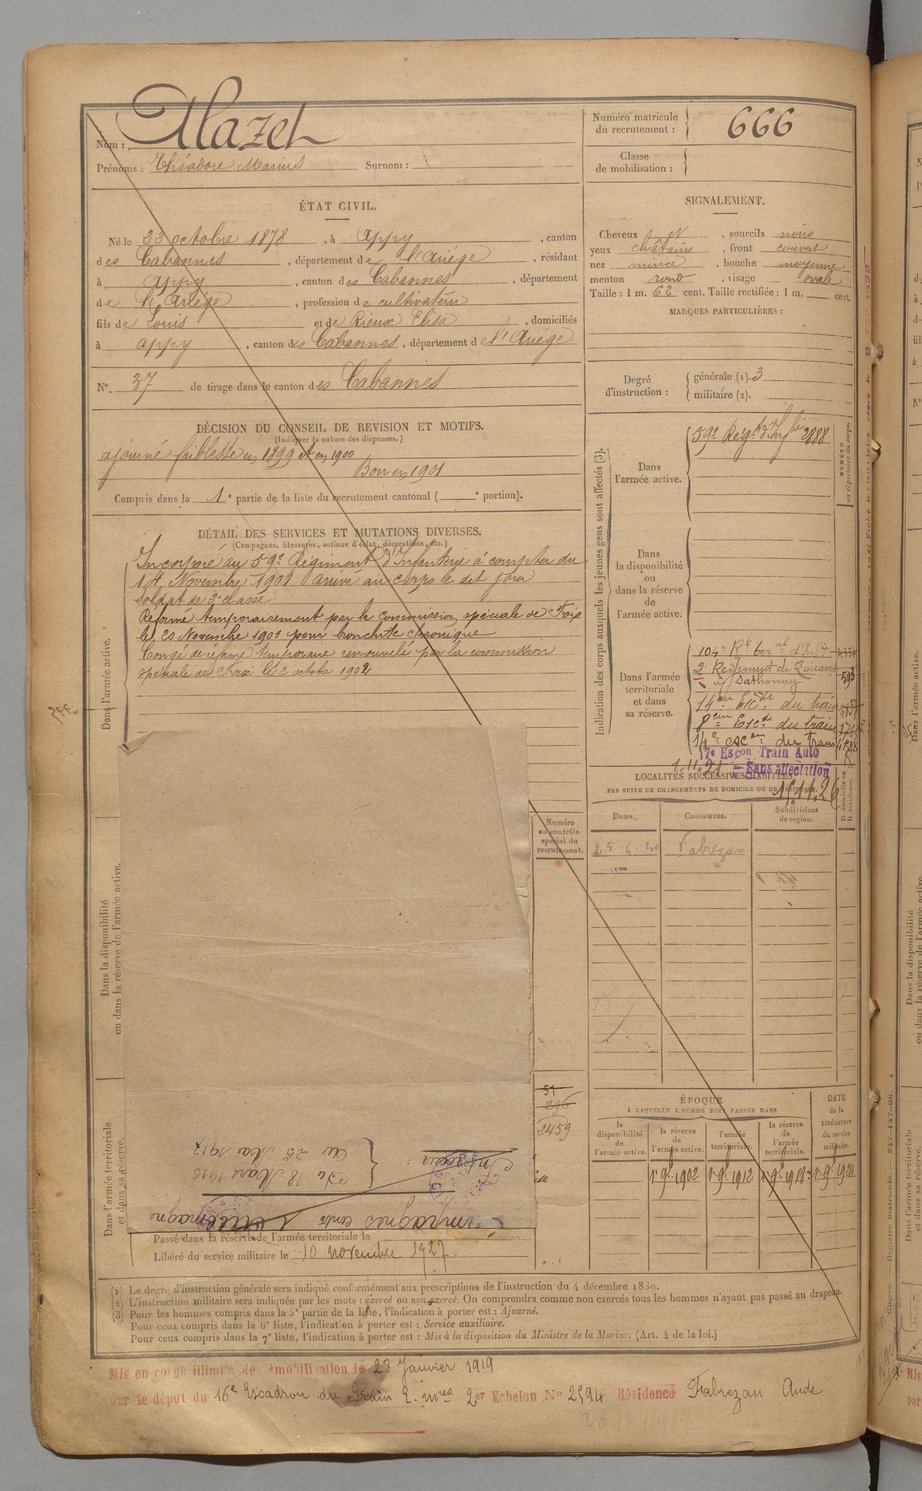 Nom : Mazet
Prénoms : Théodore Marius Surnom :
Numéro matricule du recrutement : 666
Classe de mobilisation :
ÉTAT CIVIL.
Né le 23 octobre 1878, à Appy, canton
des Cabannes, département de l'Ariége, résidant
à Appy, canton des Cabannes, département
de l'Ariége, profession de cultivateur
fils de Louis et de Rieux Elisa, domiciliés
à Appy, canton des Cabannes, département de l'Ariége
N° 37 de tirage dans le canton des Cabannes
SIGNALEMENT.
Cheveux , sourcils noirs
yeux châtains, front couvert
nez mince, bouche moyenne
menton rond, visage ovale
Taille : 1 m. 62 cent. Taille rectifiée : 1 m. cent.
MARQUES PARTICULIÈRES :
Degré d'instruction : générale (1). 3
militaire (2).
DÉCISION DU CONSEIL DE REVISION ET MOTIFS.
(Indiquer la nature des dispenses.)
ajourné faiblesse en 1899 et en 1900
Bon en 1901
Compris dans la 1e partie de la liste du recrutement cantonal ( e portion).
DÉTAIL DES SERVICES ET MUTATIONS DIVERSES.
(Campagnes, blessures, actions d'éclat, décorations, etc.)
Incorporé au 59e Régiment d'Infanterie à compter du
14 Novembre 1901 arrivé au corps le dit jour
soldat de 2e classe
Réformé temporairement par la commission spéciale de Foix
le 20 Novembre 1901 pour bronchite chronique
Congé de réforme temporaire renouvelé par la commission
spéciale de Foix le 2 octobre 1902
Dans l'armée active.
Dans la disponibilité ou dans la réserve de l'armée active.
Dans l'armée territoriale et dans sa réserve.
Indication des corps auxquels les jeunes gens sont affectés (3).
Dans l'armée active.
59e Régt d'Infie 2888
Dans la disponibilité ou dans la réserve de l'armée active.
Dans l'armée territoriale et dans sa réserve.
104e Rt
2e Régiment de Zouaves
à Sathonay
14me Esc. du train
8eme Esc. du train
14e esc. du train
17e Escon Train Auto
Sans affectation
LOCALITÉS SUCCESSIVES HABITÉES
PAR SUITE DE CHANGEMENTS DE DOMICILE OU DE RÉSIDENCE.
Dates. Communes. Subdivisions de région.
Fabrezan
Numéro au contrôle spécial du recrutement.
51
2459
Campagnes contre l'Allemagne
Intérieur :
Du 18 Mars 1915
au 25 Mai 1917
ÉPOQUE
À LAQUELLE L'HOMME DOIT PASSER DANS
la disponibilité de l'armée active.
la réserve de l'armée active.
l'armée territoriale.
la réserve de l'armée territoriale.
DATE de la libération du service militaire.
1.9.1902 1.9.1912
Passé dans la réserve de l'armée territoriale le
Libéré du service militaire le 10 novembre 1927.
(1) Le degré d'instruction générale sera indiqué conformément aux prescriptions de l'instruction du 4 décembre 1889.
(2) L'instruction militaire sera indiquée par les mots : exercé ou non exercé. On comprendra comme non exercés tous les hommes n'ayant pas passé au drapeau.
(3) Pour les hommes compris dans la 5e partie de la liste, l'indication à porter est : Ajourné.
Pour ceux compris dans la 6e liste, l'indication à porter est : Service auxiliaire.
Pour ceux compris dans la 7e liste, l'indication à porter est : Mis à la disposition du Ministre de la Marine. (Art. 4 de la loi.)
Mis en congé illimité de démobilisation le 28 Janvier 1919
par le dépôt du 16e Escadron du Train 2er Echelon No 2594 Résidence Fabrezan Aude